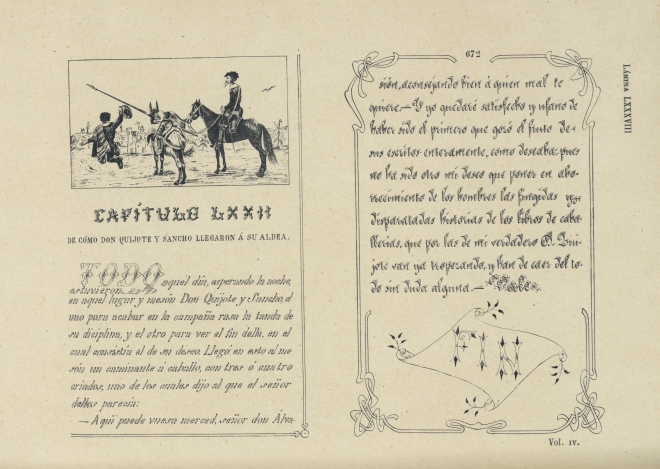 CAPÍTULO LXXII
DE CÓMO DON QUIJOTE Y SANCHO LLEGARON Á SU ALDEA.
TODO aquel día, esperando la noche,
estuvieron
en aquel lugar y mesón Don Quijote y Sancho, el
uno para acabar en la campaña rasa la tanda de
su diciplina, y el otro para ver el fin della, en el
cual consistía el de su deseo. Llegó en esto al me
són un caminante á caballo, con tres ó cuatro
criados, uno de los cuales dijo al que el señor
dellos parecía:
— Aquí puede vuesa merced, señor don Álva
672
sión, aconsejando bien á quien mal te
quiere.— Y yo quedaré satisfecho y ufano de
haber sido el primero que gozó el fruto de
sus escritos enteramente, como deseaba; pues
no ha sido otro mi deseo que poner en abo-
rrecimiento de los hombres las fingidas y
disparatadas historias de los libros de caba
llerías, que por las de mi verdadero D. Qui
jote van ya tropezando, y han de caer del to-
do sin duda alguna.— Vale.
FIN
Vol. IV.
LÁMINA LXXXVIII